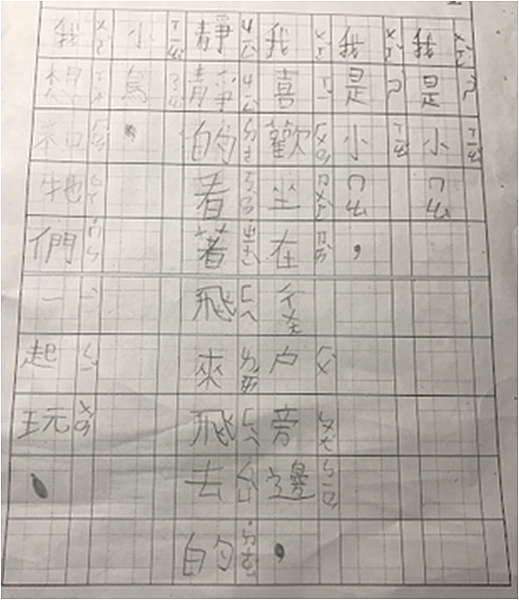 我是小ㄇㄠ
我是小ㄇㄠ，
我喜歡坐在ㄔㄨㄤ户旁邊，
靜靜的看著飛來飛去的
小鳥。
我想和牠們一起玩。